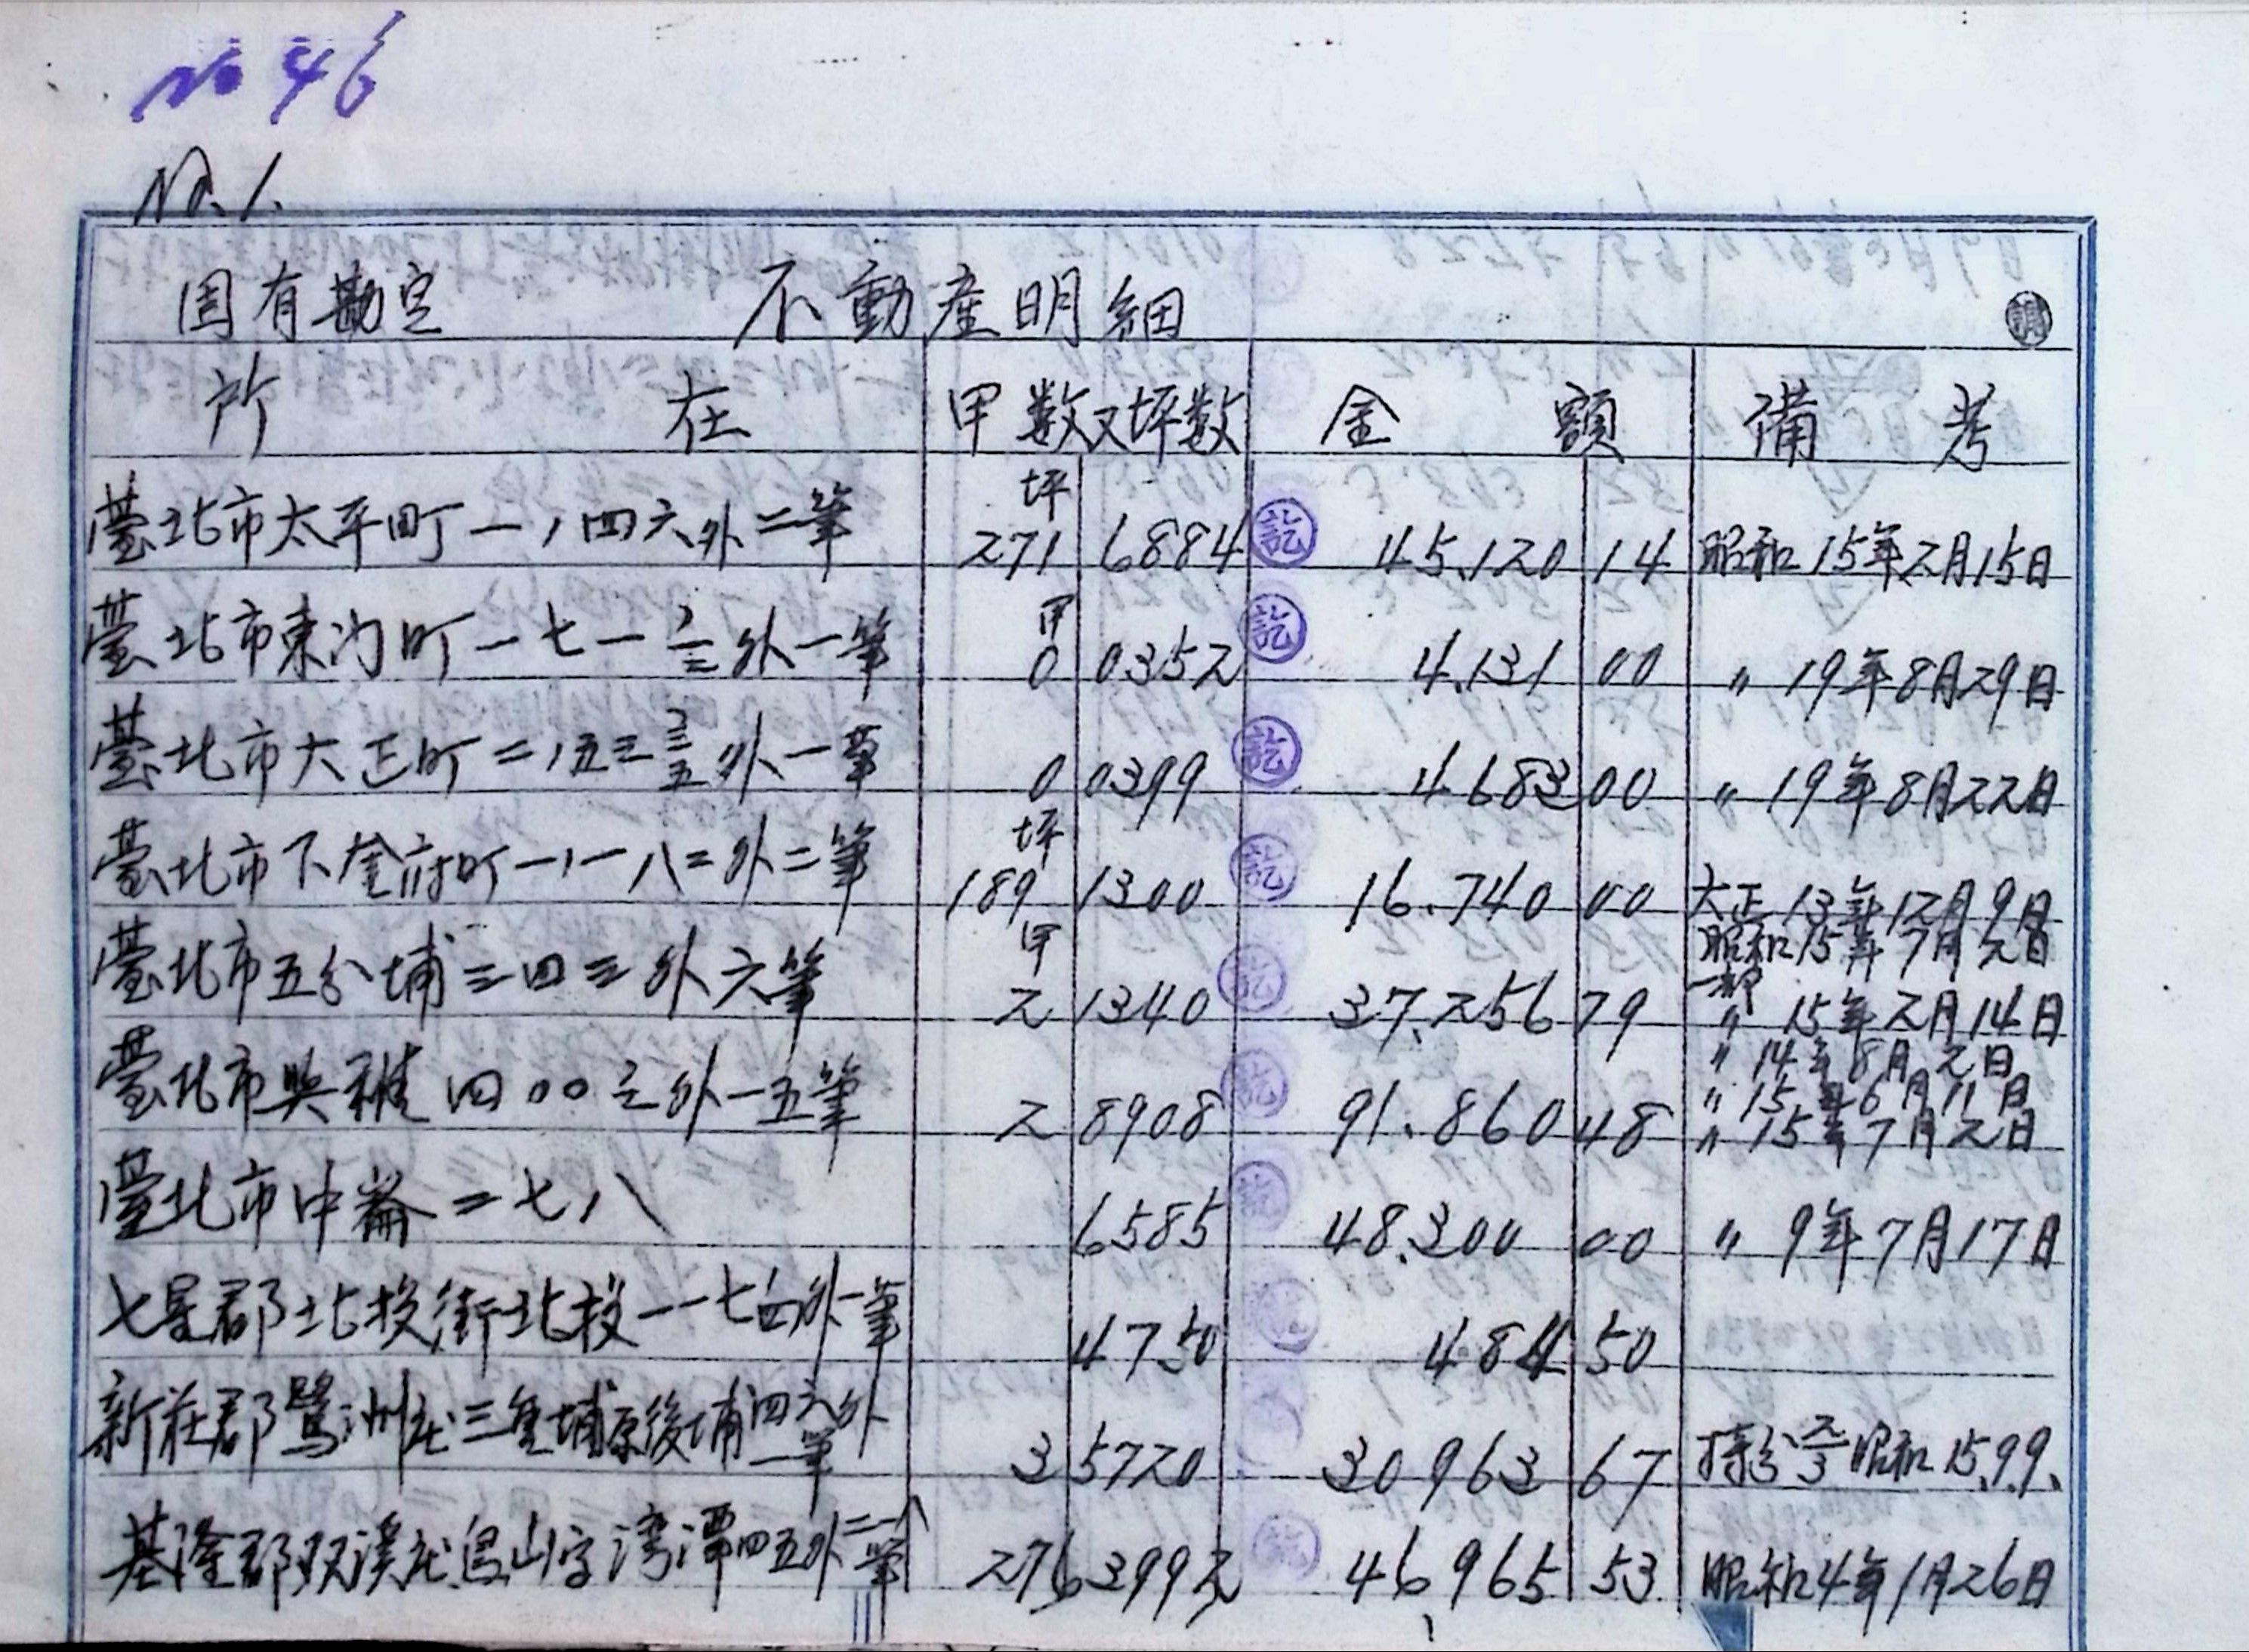 No 46
No. 1.
固有勘定 不動産明細 調
所在 甲数又坪数 金額 備考
臺北市太平町一ノ四六外二筆 坪 271 6884 訖 45,120 14 昭和15年2月15日
臺北市東门町一七一ノ三外一筆 甲 0 0352 訖 4,131 00 〃 19年8月29日
臺北市大正町二ノ五三 外一筆 0 0399 訖 4683 00 〃 19年8月22日
臺北市下奎府町一ノ一八二外二筆 坪 189 1300 訖 16.740 00 大正13年12月9日
昭和15年7月2日
臺北市五分埔三四三外六筆 甲 2 1340 訖 37,256 79 一部 〃 15年2月14日
〃 14年8月2日
〃 15年6月11日
臺北市興雅四〇〇 外一五筆 2 8908 訖 91.860 48 〃 15年7月2日
臺北市中崙二七八 6585 訖 48.300 00 〃 9年7月17日
七星郡北投街北投一一七四外一筆 4750 訖 484 50
新莊郡鷺洲庄三重埔原後埔四六外一筆 3 5720 30963 67 持分 昭和15.9.9.
基隆郡双溪庄烏山字湾潭四五外二一八筆 276 3992 訖 46,965 53 昭和4年1月26日